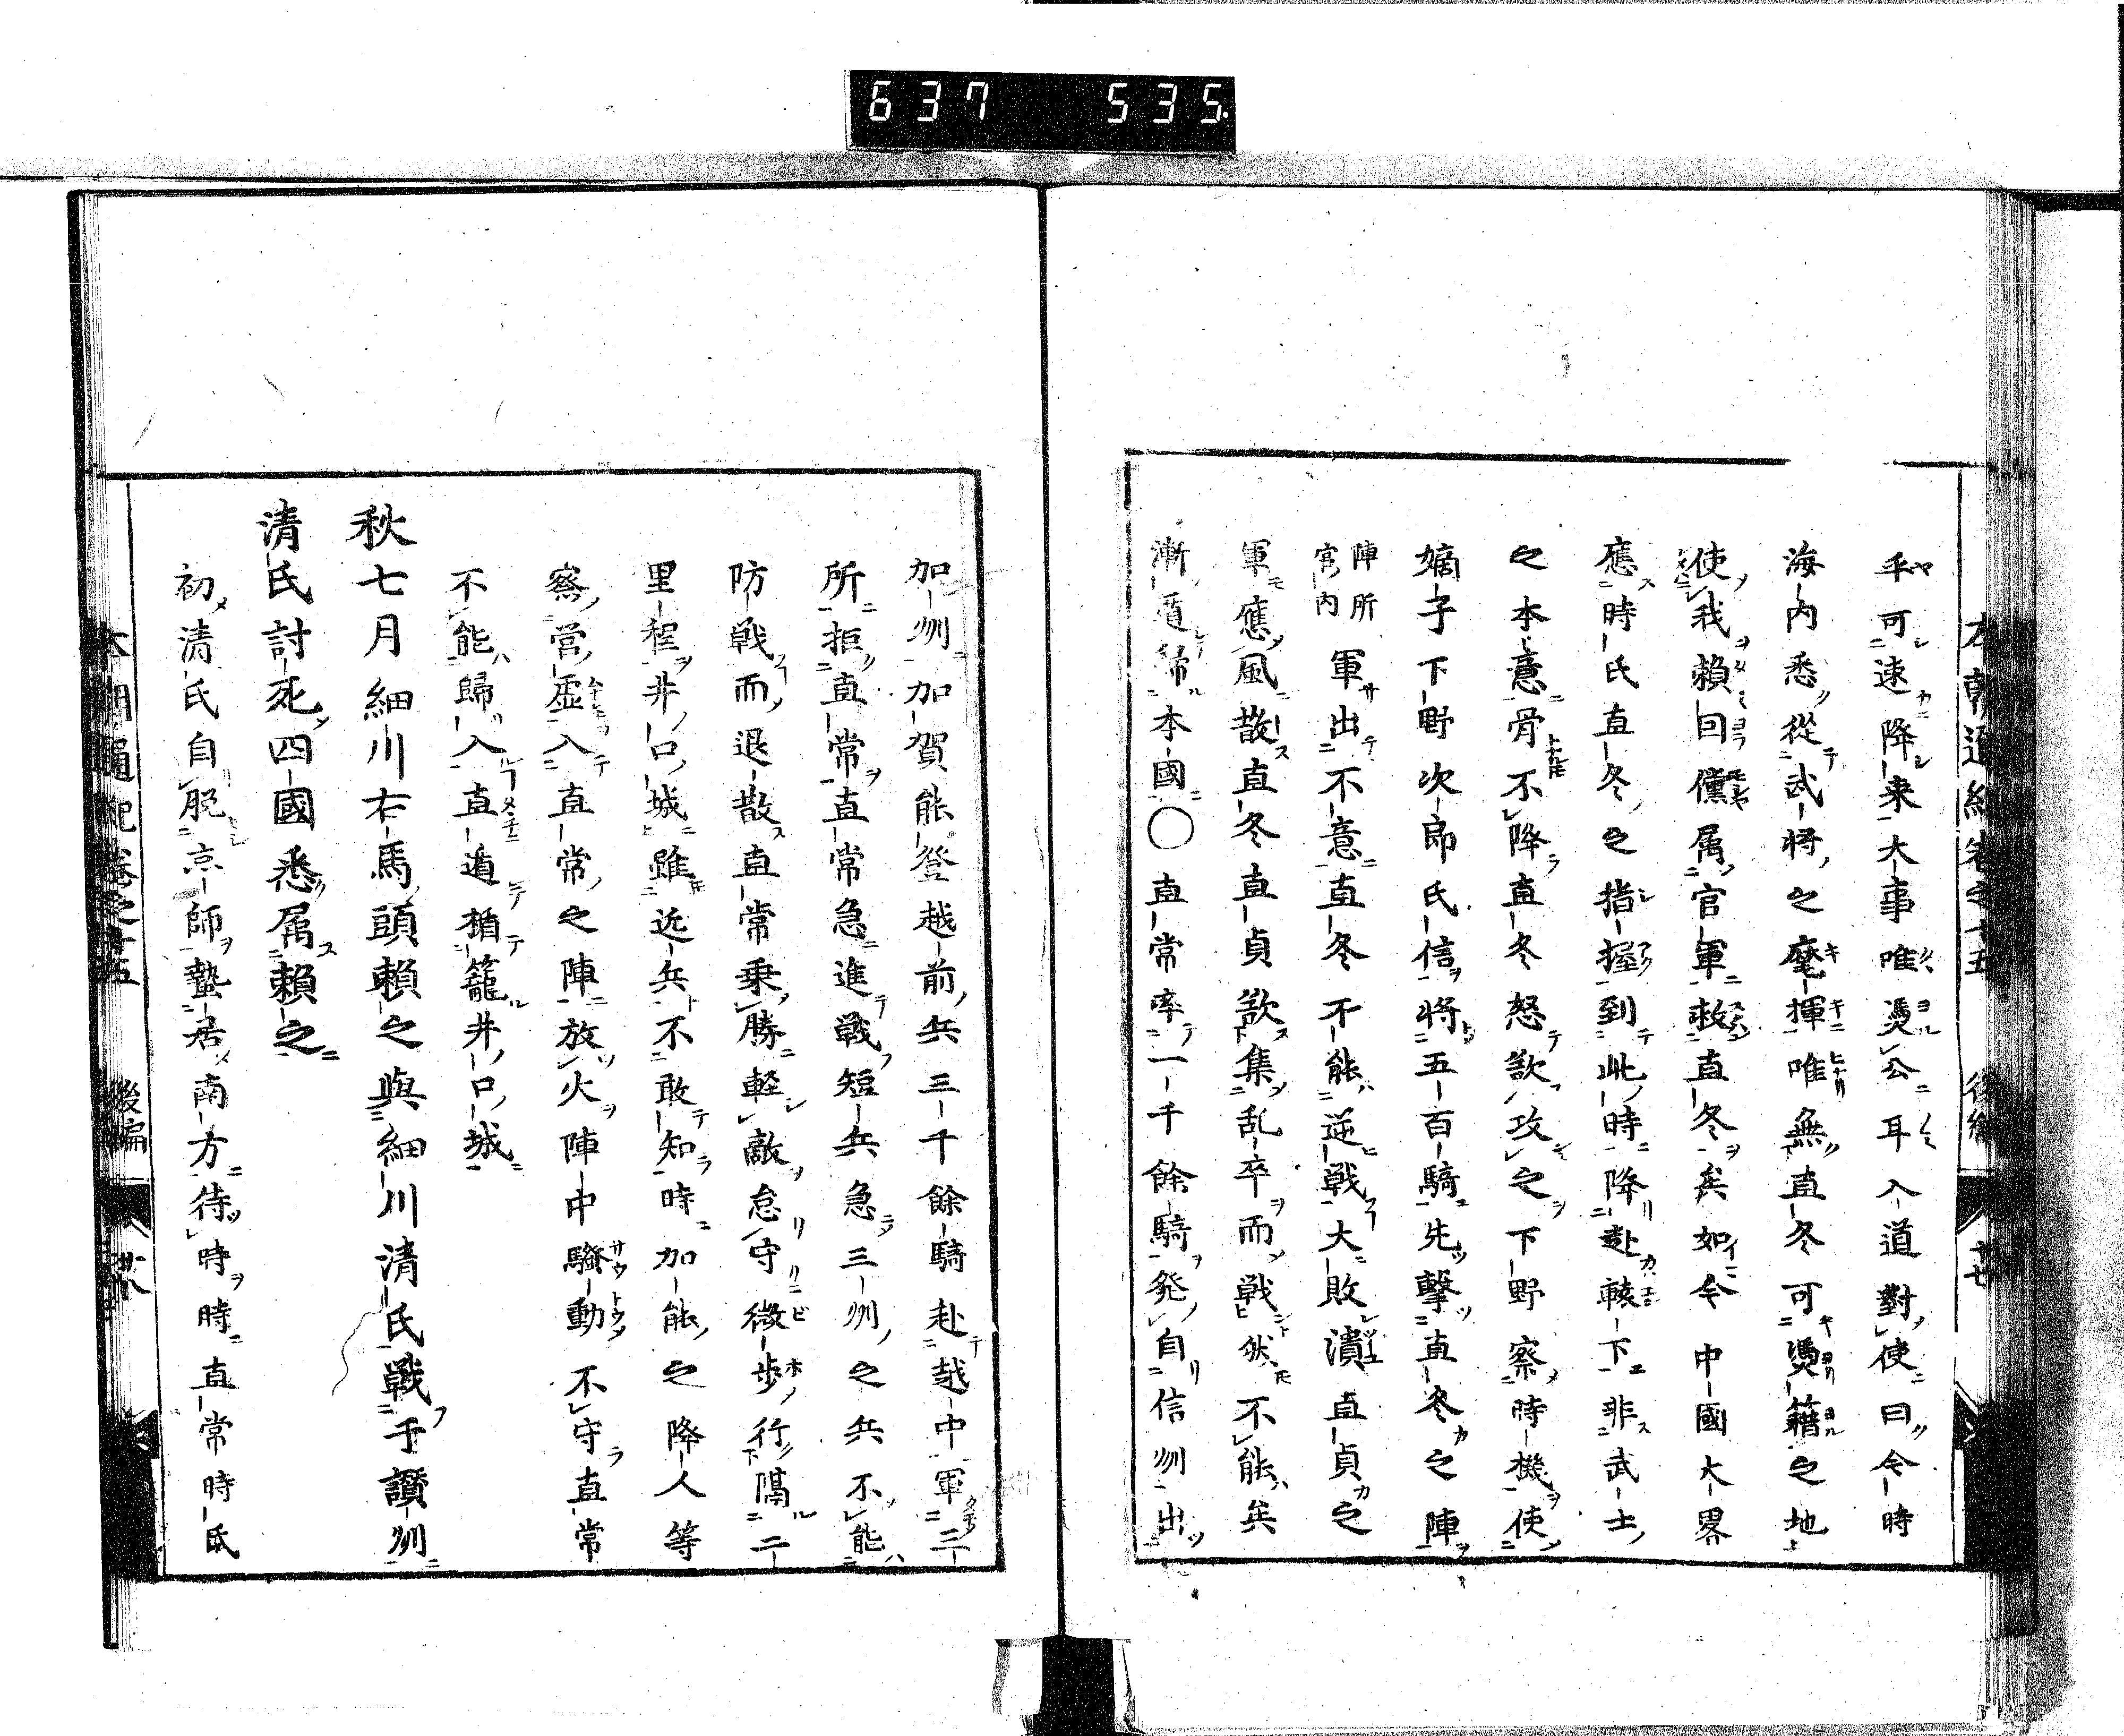 637 535.
乎可速降来大事唯憑公耳入道對使曰今時
海内悉從武将之麾揮唯無直冬可憑籍之地
使我賴回儻属官軍救直冬矣如今中國大畧
應時氏直冬之指握到此時降赴轅下非武士
之本意骨不降直冬怒欲攻之下野察時機使
嫡子下野次郎氏信将五百騎先撃直冬之陣
陣所
宮内
軍出不意直冬不能逆戦大敗潰直貞之
軍應風散直冬直貞欲集乱卒而戦然不能矣
漸遁帰本國〇直常率一千餘騎発自信州出
加州加賀能登越前兵三千餘騎赴越中軍三
所拒直常直常急進戦短兵急三州之兵不能
防戦而退散直常乗勝軽敵怠守微歩行隔二
里程井口城雖近兵不敢知時加能之降人等
察営虚入直常之陣放火陣中騒動不守直常
不能歸入直遁楯籠井口城
秋七月細川右馬頭賴之與細川清氏戦于讃州
清氏討死四國悉属賴之
初清氏自脱京師蟄居南方待時時直常時氏
本朝通紀巻之十五 後編